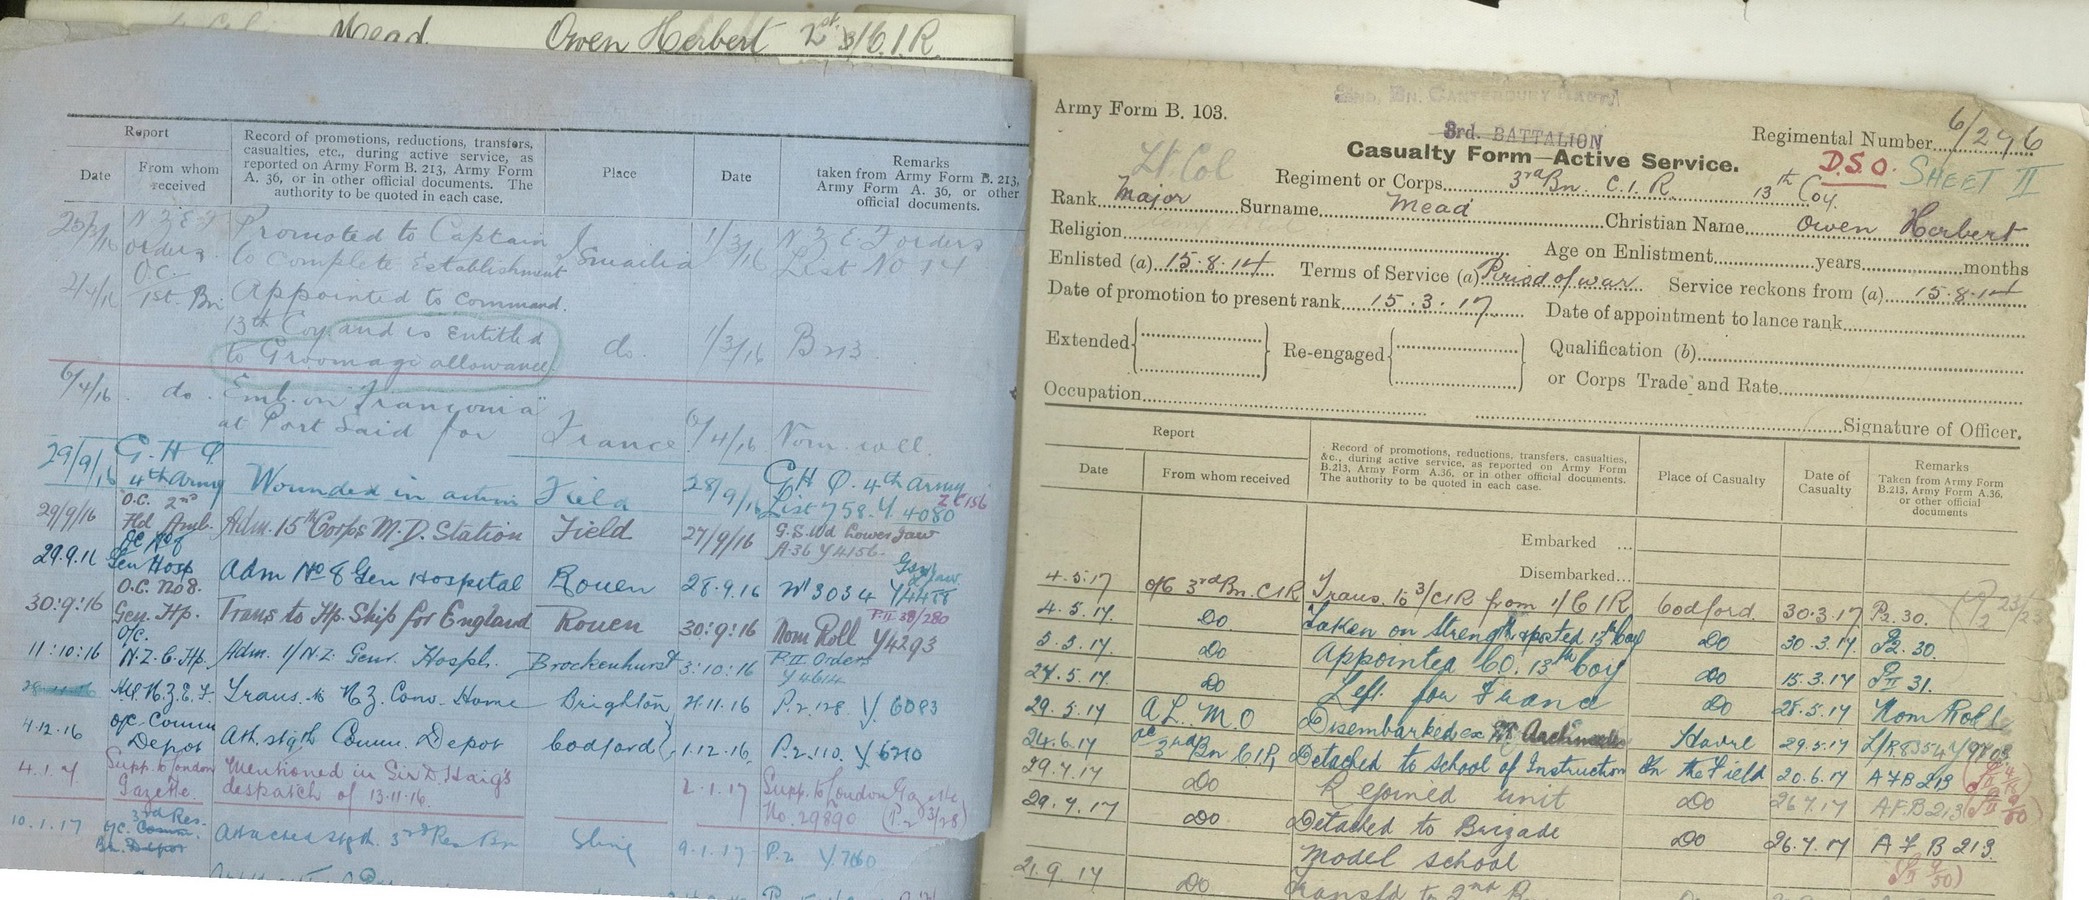 Mead Owen Herbert 2nd 3/C.I.R.
Report
Date
From whom received
Record of promotions, reductions, transfers, casualties, etc., during active service, as reported on Army Form B. 213, Army Form A. 36, or in other official documents. The authority to be quoted in each case.
Place
Date
Remarks taken from Army Form B. 213, Army Form A. 36, or other official documents.
N Z E F orders Promoted to Captain to complete Establishment Ismailia 1/3/16 N Z E F orders List No 14
2/4/16 O.C. 1st Bn Appointed to command 13th Coy and is entitled to Groomage allowance do. 1/3/16 B213
6/4/16 do. Emb. on "Franconia" at Port Said for France 6/4/16 Nom. roll.
29/9/16 G.H.Q. 4th Army Wounded in action Field 28/9/16 G H Q. 4th Army List 758. Y. 4080
29/9/16 O.C. 2nd Fld Amb. Adm. 15th Corps M.D. Station Field 27/9/16 G.S. Wd Lower Jaw A36 Y4156
29.9.16 Gen Hosp Adm No 8 Gen Hospital Rouen 28.9.16 W3034 Y4478
30:9:16 O.C. No 8. Gen. Hp. Trans to Hp. Ship for England Rouen 30:9:16 Nom Roll Y4293 P.II 38/280
11:10:16 O/C. N.Z.G.Hp. Adm. 1/N.Z. Genr. Hospl. Brockenhurst 3:10:16 P.II Orders Y4614
N.Z.E.F. Trans. to N Z. Conv. Home Brighton 21.11.16 P.2.128 Y. 6083
4.12.16 O/C Comm Depot Att. stgth Comm. Depot Codford 1.12.16. P.2.110. Y. 6210
4.1.17 Supp. to London Gazette Mentioned in Sir D. Haig's despatch of 13.11.16. 2.1.17 Supp. to London Gazette No. 29890 (P.2 3/28)
10.1.17 3rd Res. Bn. Attached stgth. 3rd Res Bn Sling 9.1.17 P.2 Y.760
Army Form B. 103.
2nd. Bn. Canterbury Regt.
3rd. BATTALION
Casualty Form—Active Service.
Regimental Number 6/296
D.S.O. SHEET II
Lt Col
Regiment or Corps 3rd Bn. C.I.R. 13th Coy.
Rank Major Surname Mead Christian Name Owen Herbert
Religion Age on Enlistment years months
Enlisted (a) 15.8.14 Terms of Service (a) Period of war Service reckons from (a) 15.8.14
Date of promotion to present rank 15.3.17 Date of appointment to lance rank
Extended Re-engaged Qualification (b)
or Corps Trade and Rate
Occupation
Signature of Officer.
Report
Date
From whom received
Record of promotions, reductions, transfers, casualties, &c., during active service, as reported on Army Form B.213, Army Form A.36, or in other official documents. The authority to be quoted in each case.
Place of Casualty
Date of Casualty
Remarks Taken from Army Form B.213, Army Form A.36, or other official documents
Embarked ...
Disembarked...
4.5.17 O/C 3rd Bn. C.I.R. Trans. to 3/CIR from 1/C I R Codford. 30.3.17 P2.30.
4.5.17. Do Taken on Strength & posted 13th Coy Do 30.3.17. P2.30.
5.5.17. Do Appointed CO. 13th Coy Do 15.3.17 P II 31.
27.5.17. Do Left for France Do 28.5.17 Nom Roll
29.5.17 A.L.M.O Disembarked ex Havre 29.5.17
24.6.17 OC 3rd Bn C.I.R. Detached to School of Instruction In the Field 20.6.17 AFB 213
29.7.17 Do Rejoined unit Do 26.7.17 A.F.B 213
29.7.17 Do Detached to Brigade Model School Do 26.7.17 A F B 213.
21.9.17 Do Transfd to 2nd B